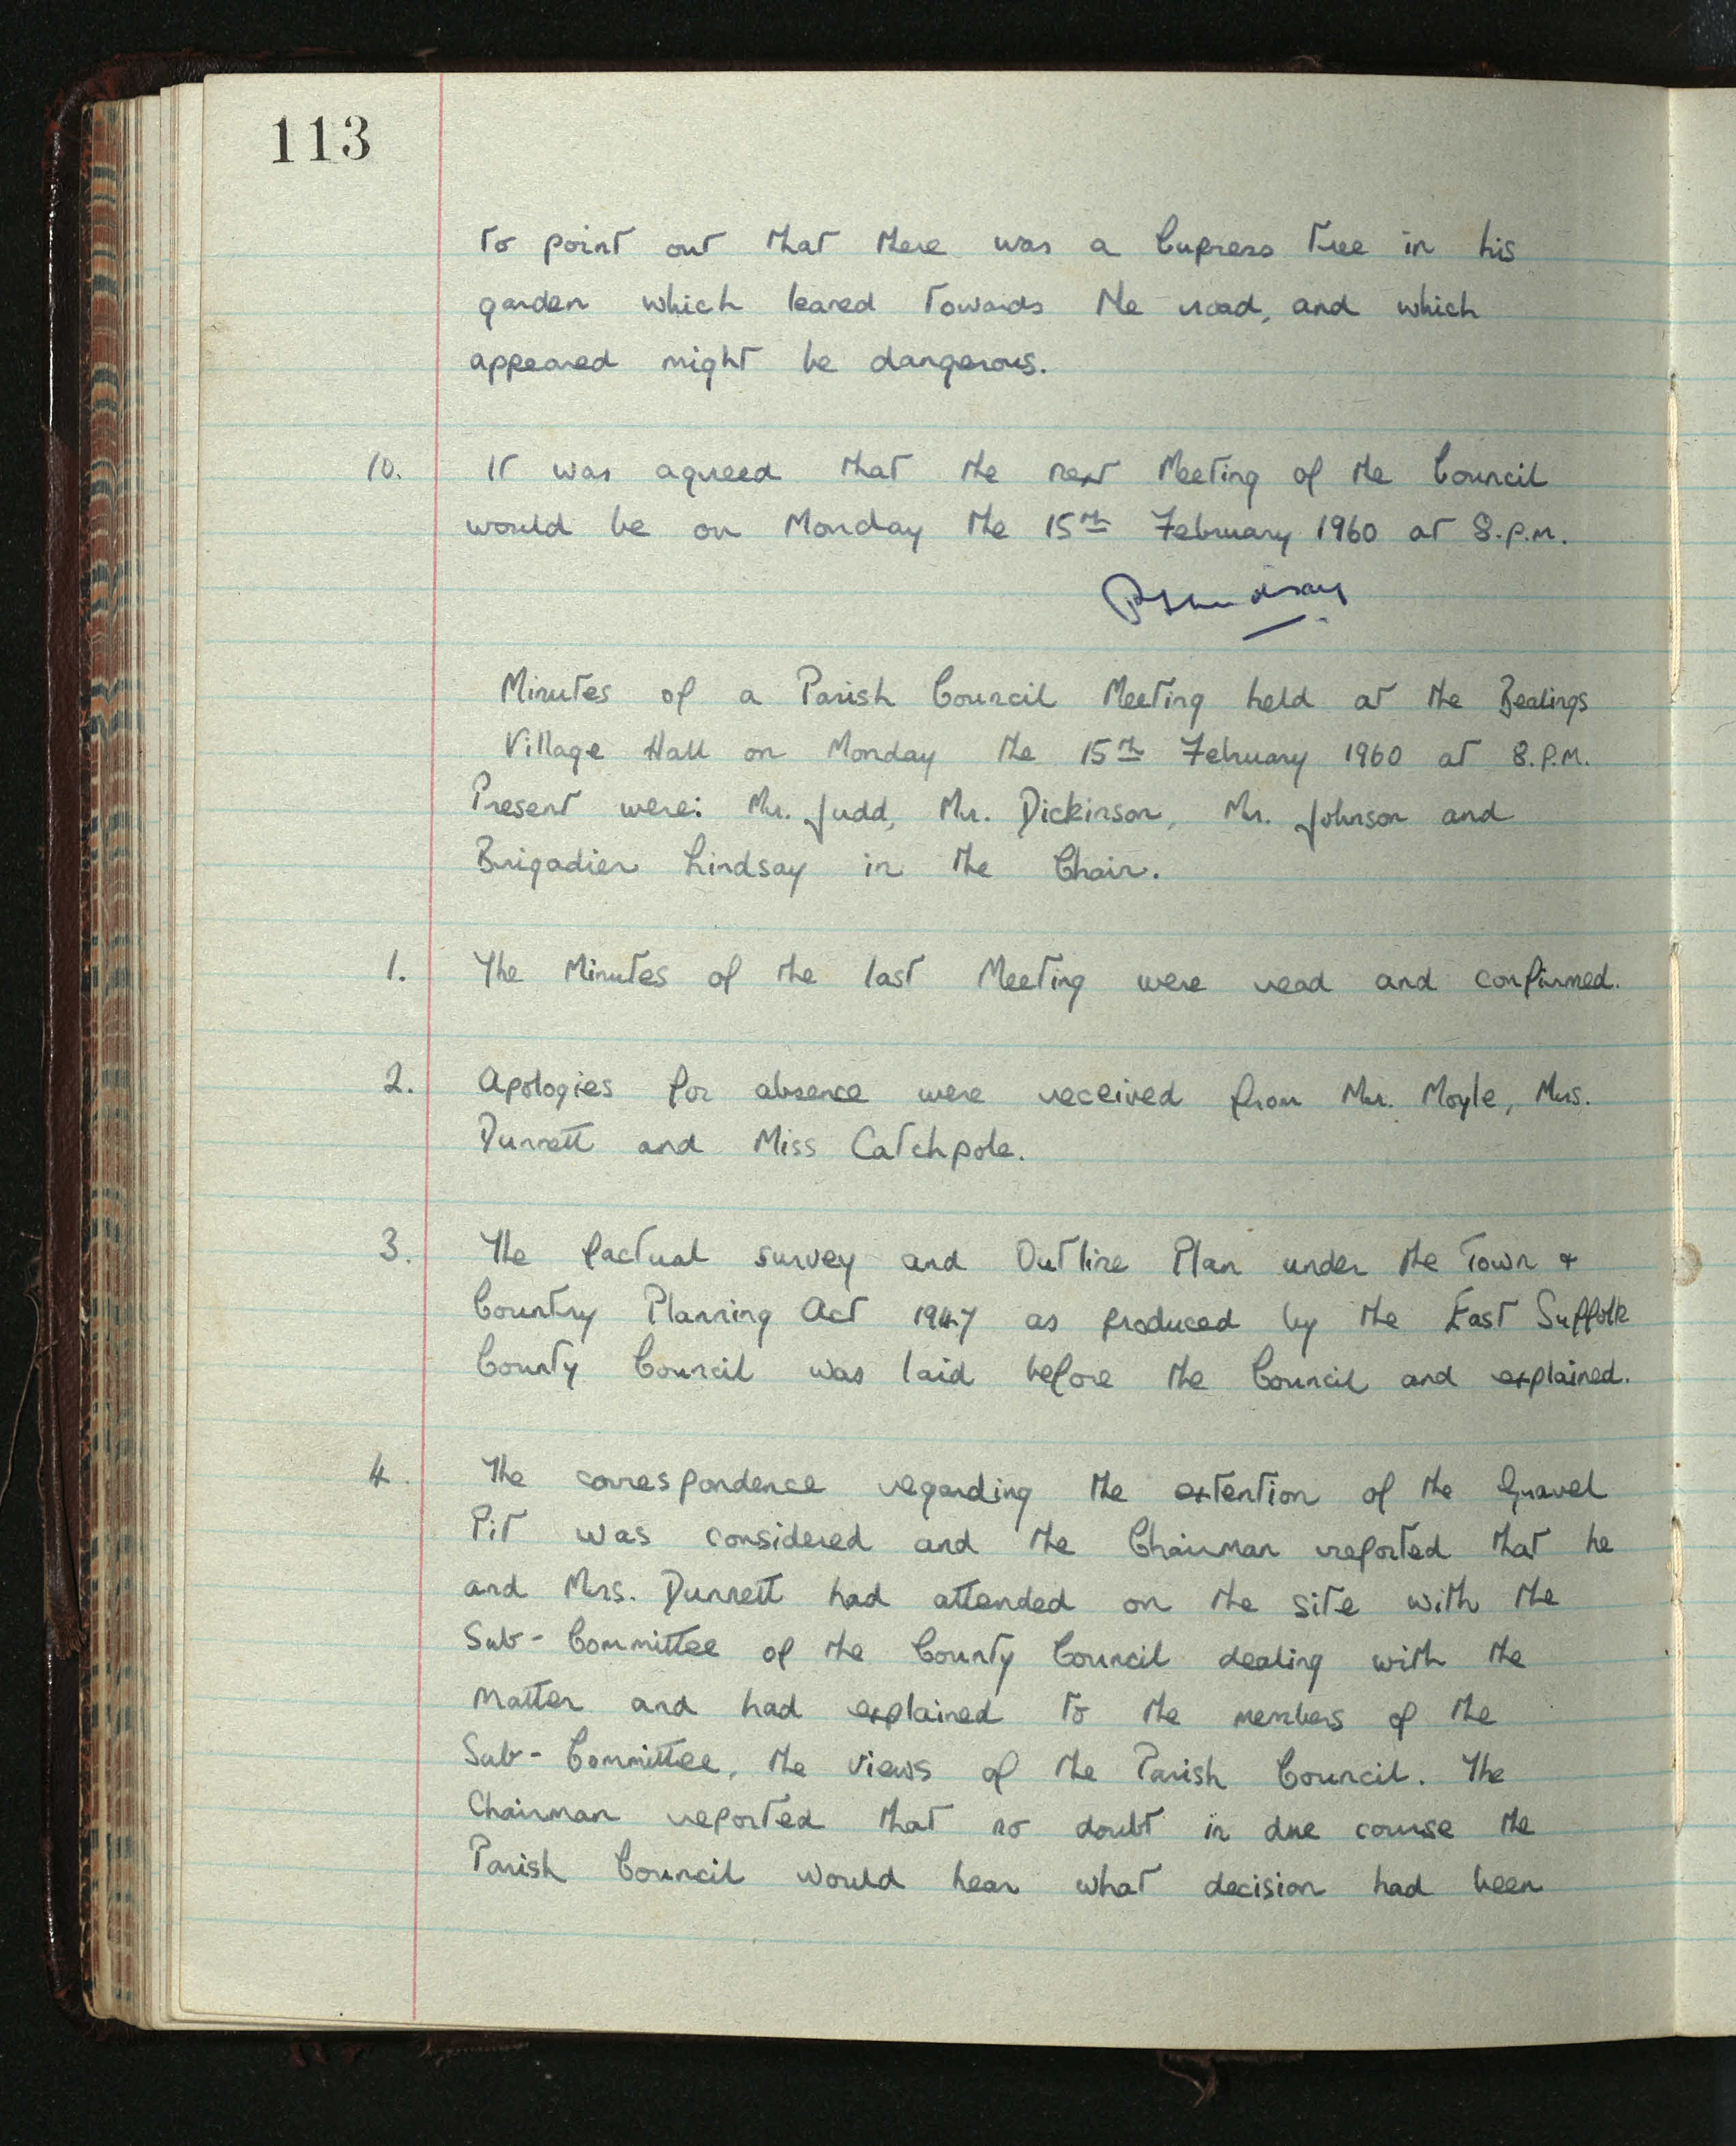 113
to point out that there was a Cupress tree in his
garden which leaned towards the road, and which
appeared might be dangerous.
10. It was agreed that the next Meeting of the Council
would be on Monday the 15th February 1960 at 8.p.m.
Minutes of a Parish Council Meeting held at the Bealings
Village Hall on Monday the 15th February 1960 at 8.P.M.
Present were: Mr. Judd, Mr. Dickinson, Mr. Johnson and
Brigadier Lindsay in the Chair.
1. The Minutes of the last Meeting were read and confirmed.
2. Apologies for absence were received from Mr. Moyle, Mrs.
Durrett and Miss Catchpole.
3. The factual survey and Outline Plan under the Town &
Country Planning Act 1947 as produced by the East Suffolk
County Council was laid before the Council and explained.
4. The correspondence regarding the extention of the Gravel
Pit was considered and the Chairman reported that he
and Mrs. Durrett had attended on the site with the
Sub-Committee of the County Council dealing with the
matter and had explained to the members of the
Sub-Committee, the views of the Parish Council. The
Chairman reported that no doubt in due course the
Parish Council would hear what decision had been